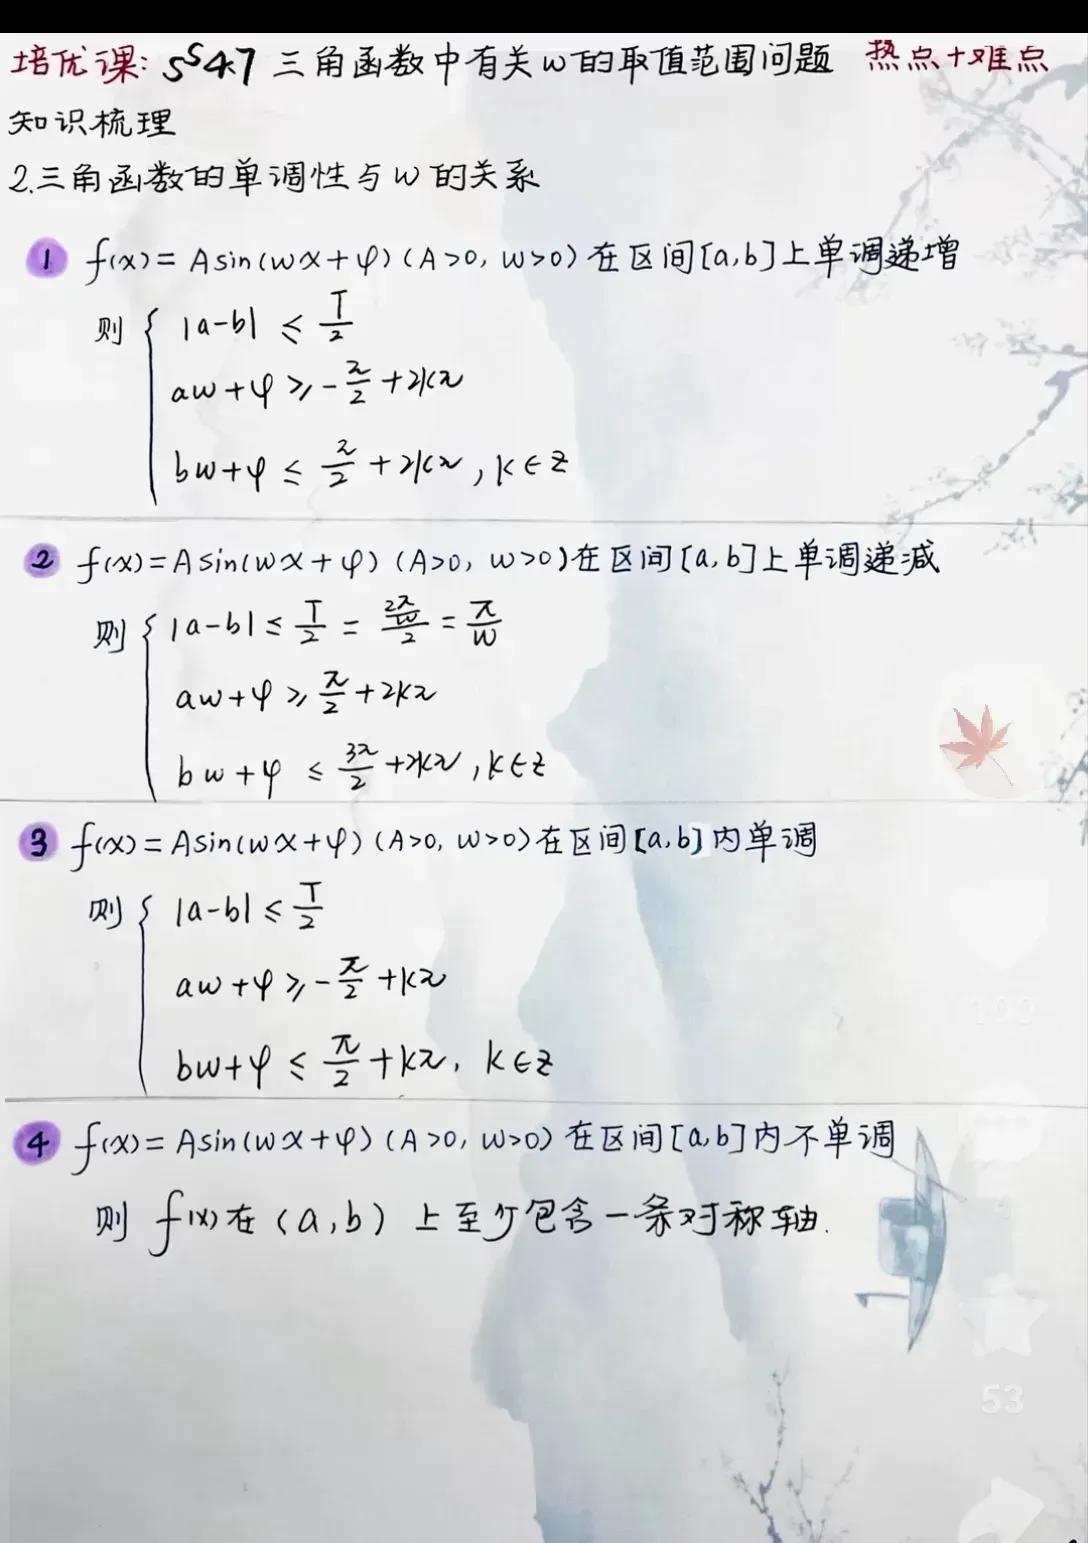 培优课: §5.4.7 三角函数中有关w的取值范围问题 热点+难点
知识梳理
2.三角函数的单调性与w的关系
1 f(x)=Asin(wx+φ)(A>0, w>0)在区间[a,b]上单调递增
则 { |a-b| ≤ T/2
aw+φ ≥ -π/2+2kπ
bw+φ ≤ π/2+2kπ, k∈Z
2 f(x)=Asin(wx+φ)(A>0, w>0)在区间[a,b]上单调递减
则 { |a-b| ≤ T/2 = (2π/w)/2 = π/w
aw+φ ≥ π/2+2kπ
bw+φ ≤ 3π/2+2kπ, k∈Z
3 f(x)=Asin(wx+φ)(A>0, w>0)在区间[a,b]内单调
则 { |a-b| ≤ T/2
aw+φ ≥ -π/2+kπ
bw+φ ≤ π/2+kπ, k∈Z
100
4 f(x)=Asin(wx+φ)(A>0, w>0)在区间[a,b]内不单调
则 f(x)在(a,b)上至少包含一条对称轴.
53